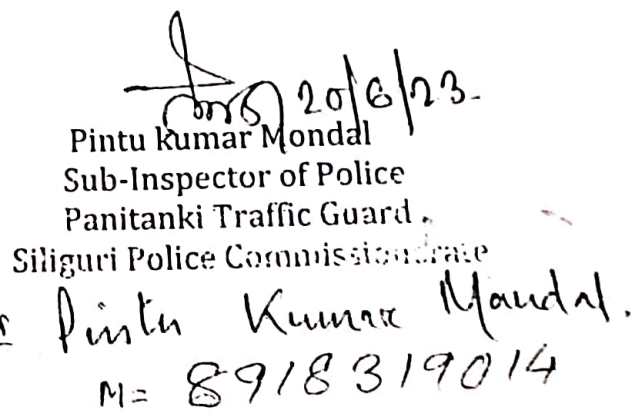 20/6/23.
Pintu kumar Mondal
Sub-Inspector of Police
Panitanki Traffic Guard.
Siliguri Police Commissionerate
Pintu Kumar Mandal.
M= 8918319014